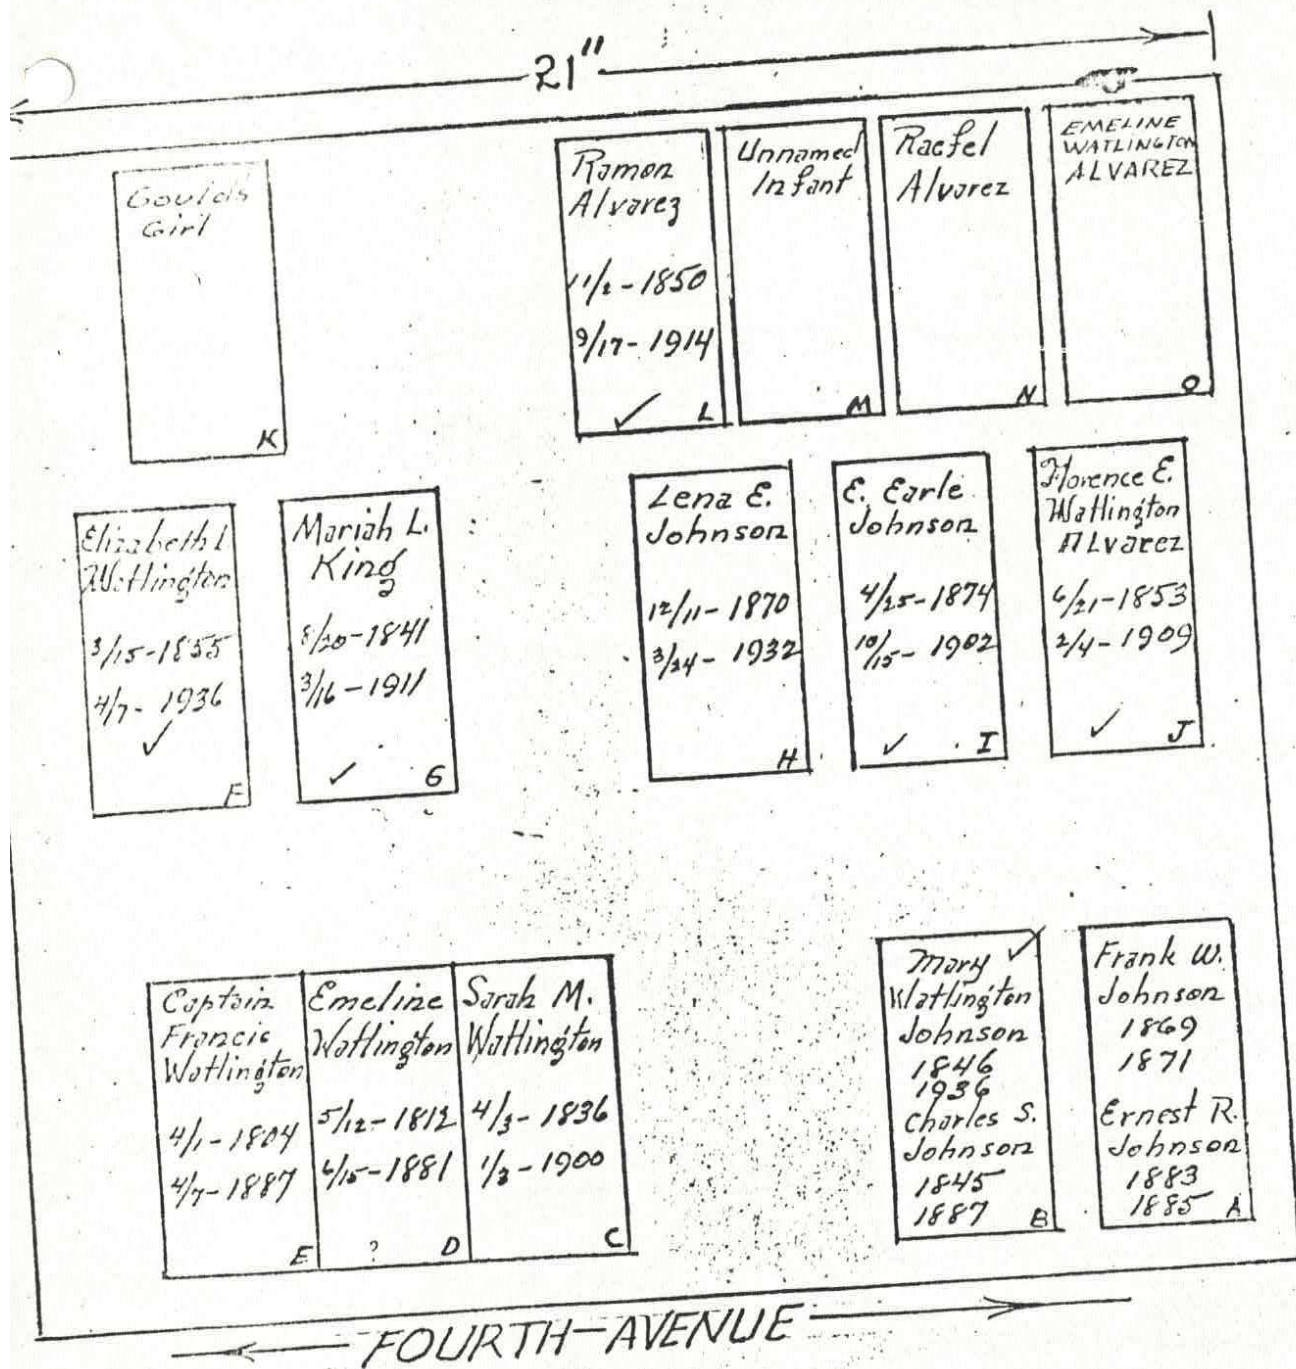 21"
Goulds
Girl
K
Ramon
Alvarez
11/2-1850
9/17-1914
✓ L
Unnamed
Infant
M
Raefel
Alvarez
N
EMELINE
WATLINGTON
ALVAREZ
O
Elizabeth I.
Watlington
3/15-1855
4/7-1936
✓
F
Mariah L.
King
8/20-1841
3/16-1911
✓ G
Lena E.
Johnson
12/11-1870
3/24-1932
H
E. Earle
Johnson
4/25-1874
10/15-1902
✓ I
Florence E.
Watlington
Alvarez
6/21-1853
2/4-1909
✓ J
Captain
Francis
Watlington
4/1-1804
4/7-1887
E
Emeline
Watlington
5/12-1812
6/15-1881
? D
Sarah M.
Watlington
4/3-1836
1/3-1900
C
Mary ✓
Watlington
Johnson
1846
1936
Charles S.
Johnson
1845
1887 B
Frank W.
Johnson
1869
1871
Ernest R.
Johnson
1883
1885 A
FOURTH-AVENUE